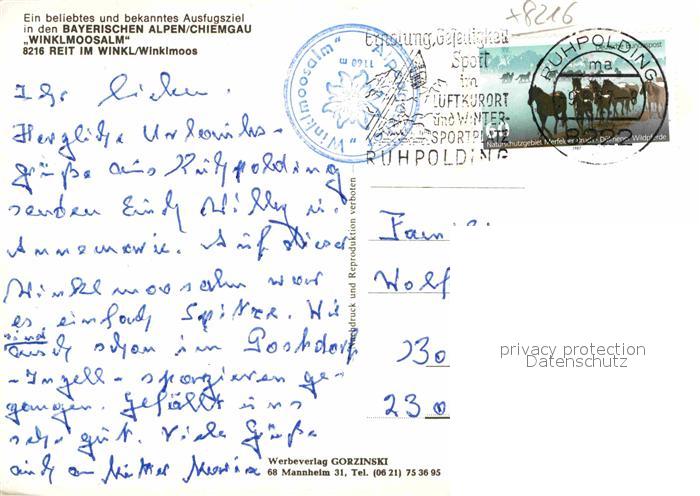 Ein beliebtes und bekanntes Ausfugsziel
in den BAYERISCHEN ALPEN/CHIEMGAU
„WINKLMOOSALM"
8216 REIT IM WINKL/Winklmoos
+8216
"Winklmoosalm"
1160 m
Erholung, Geselligkeit
Sport
im
LUFTKURORT
und WINTER-
SPORTPLATZ
RUHPOLDING
RUHPOLDING
ma
Deutsche Bundespost
Naturschutzgebiet Merfelder Bruch · Dülmener Wildpferde
1987
Ihr Lieben.
Herzliche Urlaubs-
grüße aus Ruhpolding
senden Euch Willy u.
Annemarie. Auf dieser
Winklmoosalm war
es einfach Spitze. Wir
sind
auch schon im
- Inzell - spazieren ge-
gangen. Gefällt uns
sehr gut. Viele Grüße
auch an
Nachdruck und Reproduktion verboten
Fami
Wolf
230
Werbeverlag GORZINSKI
68 Mannheim 31, Tel. (06 21) 75 36 95
privacy protection
Datenschutz